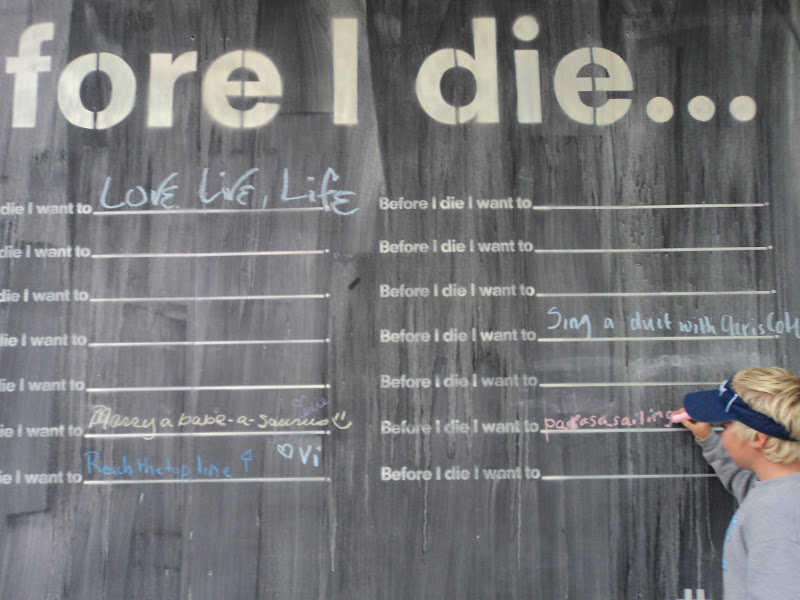 fore I die...
die I want to Love Live, Life
die I want to
die I want to
die I want to
die I want to
ie I want to Marry a babe-a-saurus
ie I want to Reach the top line ♡ Vi
Before I die I want to
Before I die I want to
Before I die I want to
Before I die I want to Sing a duet with Chris
Before I die I want to
Before I die I want to parasasailing
Before I die I want to